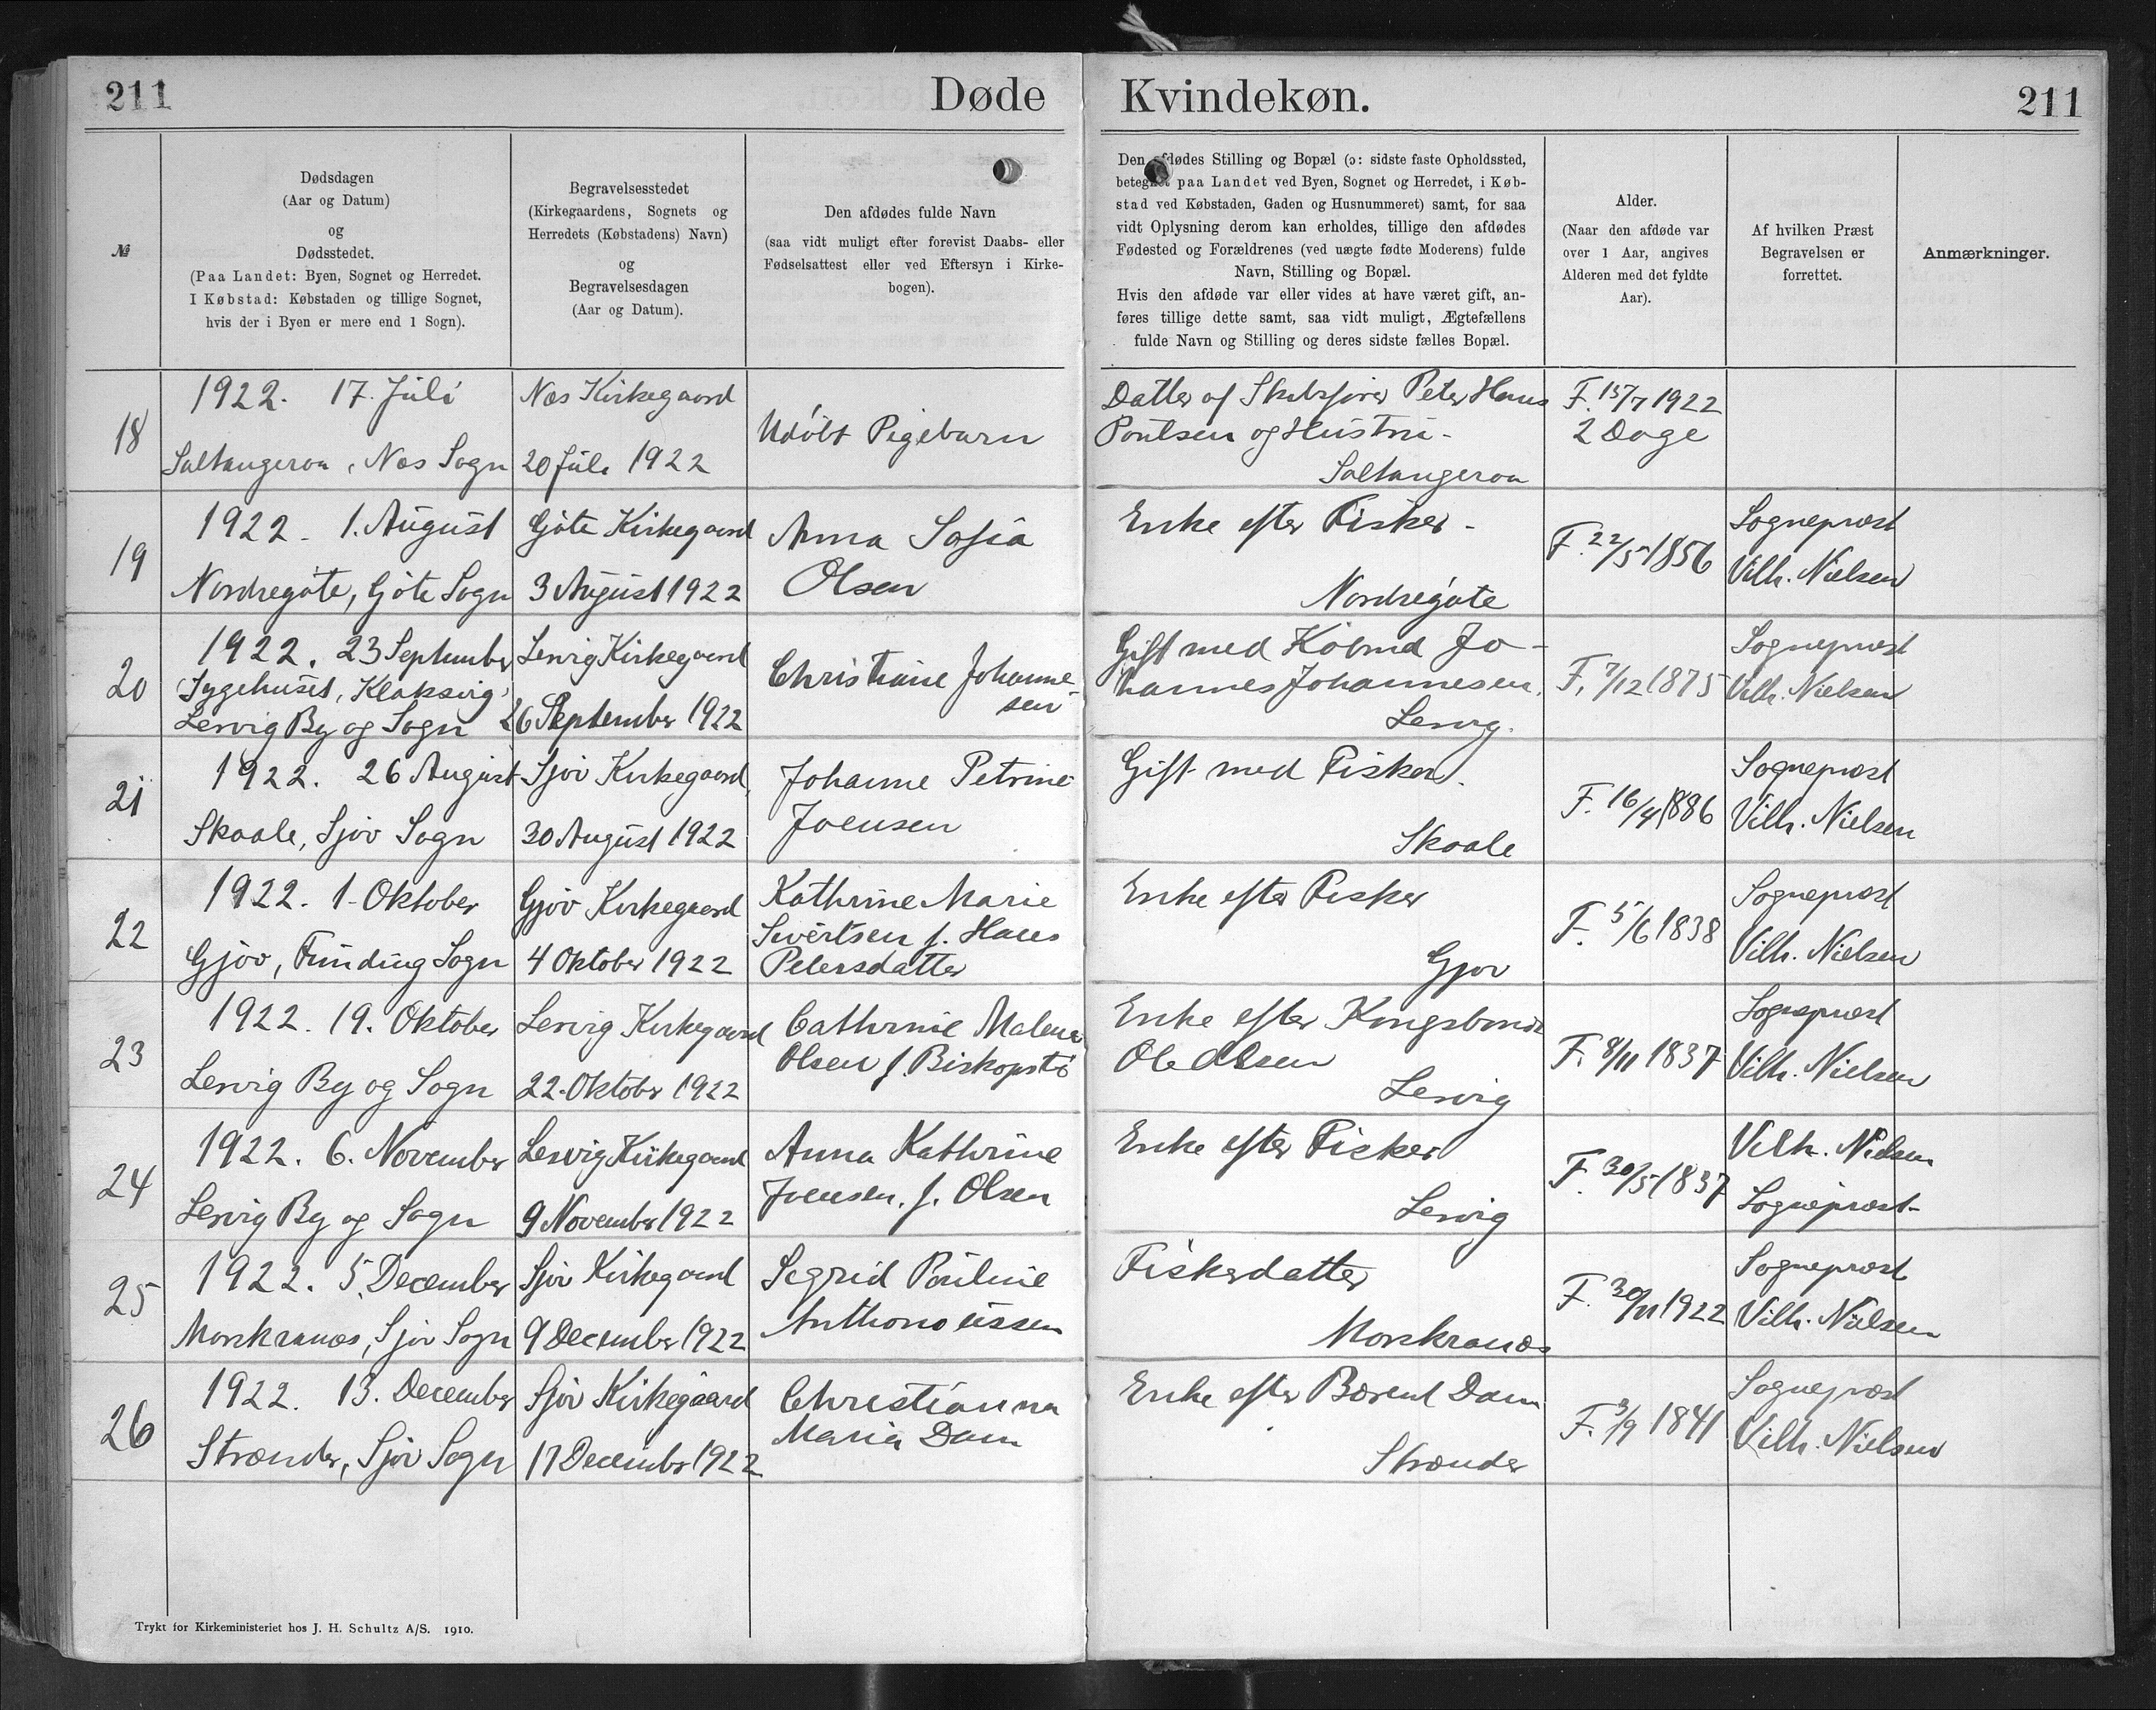 211
Døde
Kvindekøn.
211
№
Dødsdagen
(Aar og Datum)
og
Dødsstedet.
(Paa Landet: Byen, Sognet og Herredet.
I Købstad: Købstaden og tillige Sognet,
hvis der i Byen er mere end 1 Sogn).
Begravelsesstedet
(Kirkegaardens, Sognets og
Herredets (Købstadens) Navn)
og
Begravelsesdagen
(Aar og Datum).
Den afdødes fulde Navn
(saa vidt muligt efter forevist Daabs- eller
Fødselsattest eller ved Eftersyn i Kirke-
bogen).
Den afdødes Stilling og Bopæl (ɔ: sidste faste Opholdssted,
betegnet paa Landet ved Byen, Sognet og Herredet, i Køb-
stad ved Købstaden, Gaden og Husnummeret) samt, for saa
vidt Oplysning derom kan erholdes, tillige den afdødes
Fødested og Forældrenes (ved uægte fødte Moderens) fulde
Navn, Stilling og Bopæl.
Hvis den afdøde var eller vides at have været gift, an-
føres tillige dette samt, saa vidt muligt, Ægtefællens
fulde Navn og Stilling og deres sidste fælles Bopæl.
Alder.
(Naar den afdøde var
over 1 Aar, angives
Alderen med det fyldte
Aar).
Af hvilken Præst
Begravelsen er
forrettet.
Anmærkninger.
18
1922. 17. Juli
Saltangeraa, Næs Sogn
Næs Kirkegaard
20 Juli 1922
Udöbt Pigebarn
Datter af Skibsfører Peter Hans
Poulsen og Hustru -
Saltangeraa
F. 15/7 1922
2 Dage
19
1922. 1. August
Nordregöte, Göte Sogn
Göte Kirkegaard
3 August 1922
Anna Sofia
Olsen
Enke efter Fisker -
Nordregöte
F. 22/5 1856
Sognepræst
Vilh. Nielsen
20
1922. 23 September
Sygehuset, Klaksvig
Lervig By og Sogn
Lervig Kirkegaard
26 September 1922
Christiane Johanne-
sen
Gift med Købmd Jo-
hannes Johannesen.
Lervig.
F. 7/12 1875
Sognepræst
Vilh. Nielsen
21
1922. 26 August
Skaale, Sjov Sogn
Sjov Kirkegaard,
30 August 1922
Johanne Petrine
Joensen
Gift med Fisker.
Skaale
F. 16/4 1886
Sognepræst
Vilh. Nielsen
22
1922. 1. Oktober
Gjov, Funding Sogn
Gjov Kirkegaard
4 Oktober 1922
Kathrine Marie
Sivertsen f. Hans
Petersdatter
Enke efter Fisker
Gjov
F. 5/6 1838
Sognepræst
Vilh. Nielsen
23
1922. 19. Oktober
Lervig By og Sogn
Lervig Kirkegaard
22. Oktober 1922
Cathrine Malene
Olsen f. Biskopstö
Enke efter Kongsbonde
Ole Olsen
Lervig
F. 8/11 1837
Sognepræst
Vilh. Nielsen
24
1922. 6. November
Lervig By og Sogn
Lervig Kirkegaard
9 November 1922
Anna Kathrine
Joensen. f. Olsen
Enke efter Fisker
Lervig
F. 30/5 1837
Vilh. Nielsen
Sognepræst
25
1922. 5. December
Morskranæs, Sjov Sogn
Sjov Kirkegaard
9 December 1922
Segrid Pouline
Anthoniussen
Fiskerdatter
Morskranæs
F. 30/11 1922
Sognepræst
Vilh. Nielsen
26
1922. 13. December
Strænder, Sjov Sogn
Sjov Kirkegaard
17 December 1922
Christianna
Maria Dam
Enke efter Bærent Dam
Strænder
F. 3/9 1841
Sognepræst
Vilh. Nielsen
Trykt for Kirkeministeriet hos J. H. Schultz A/S. 1910.